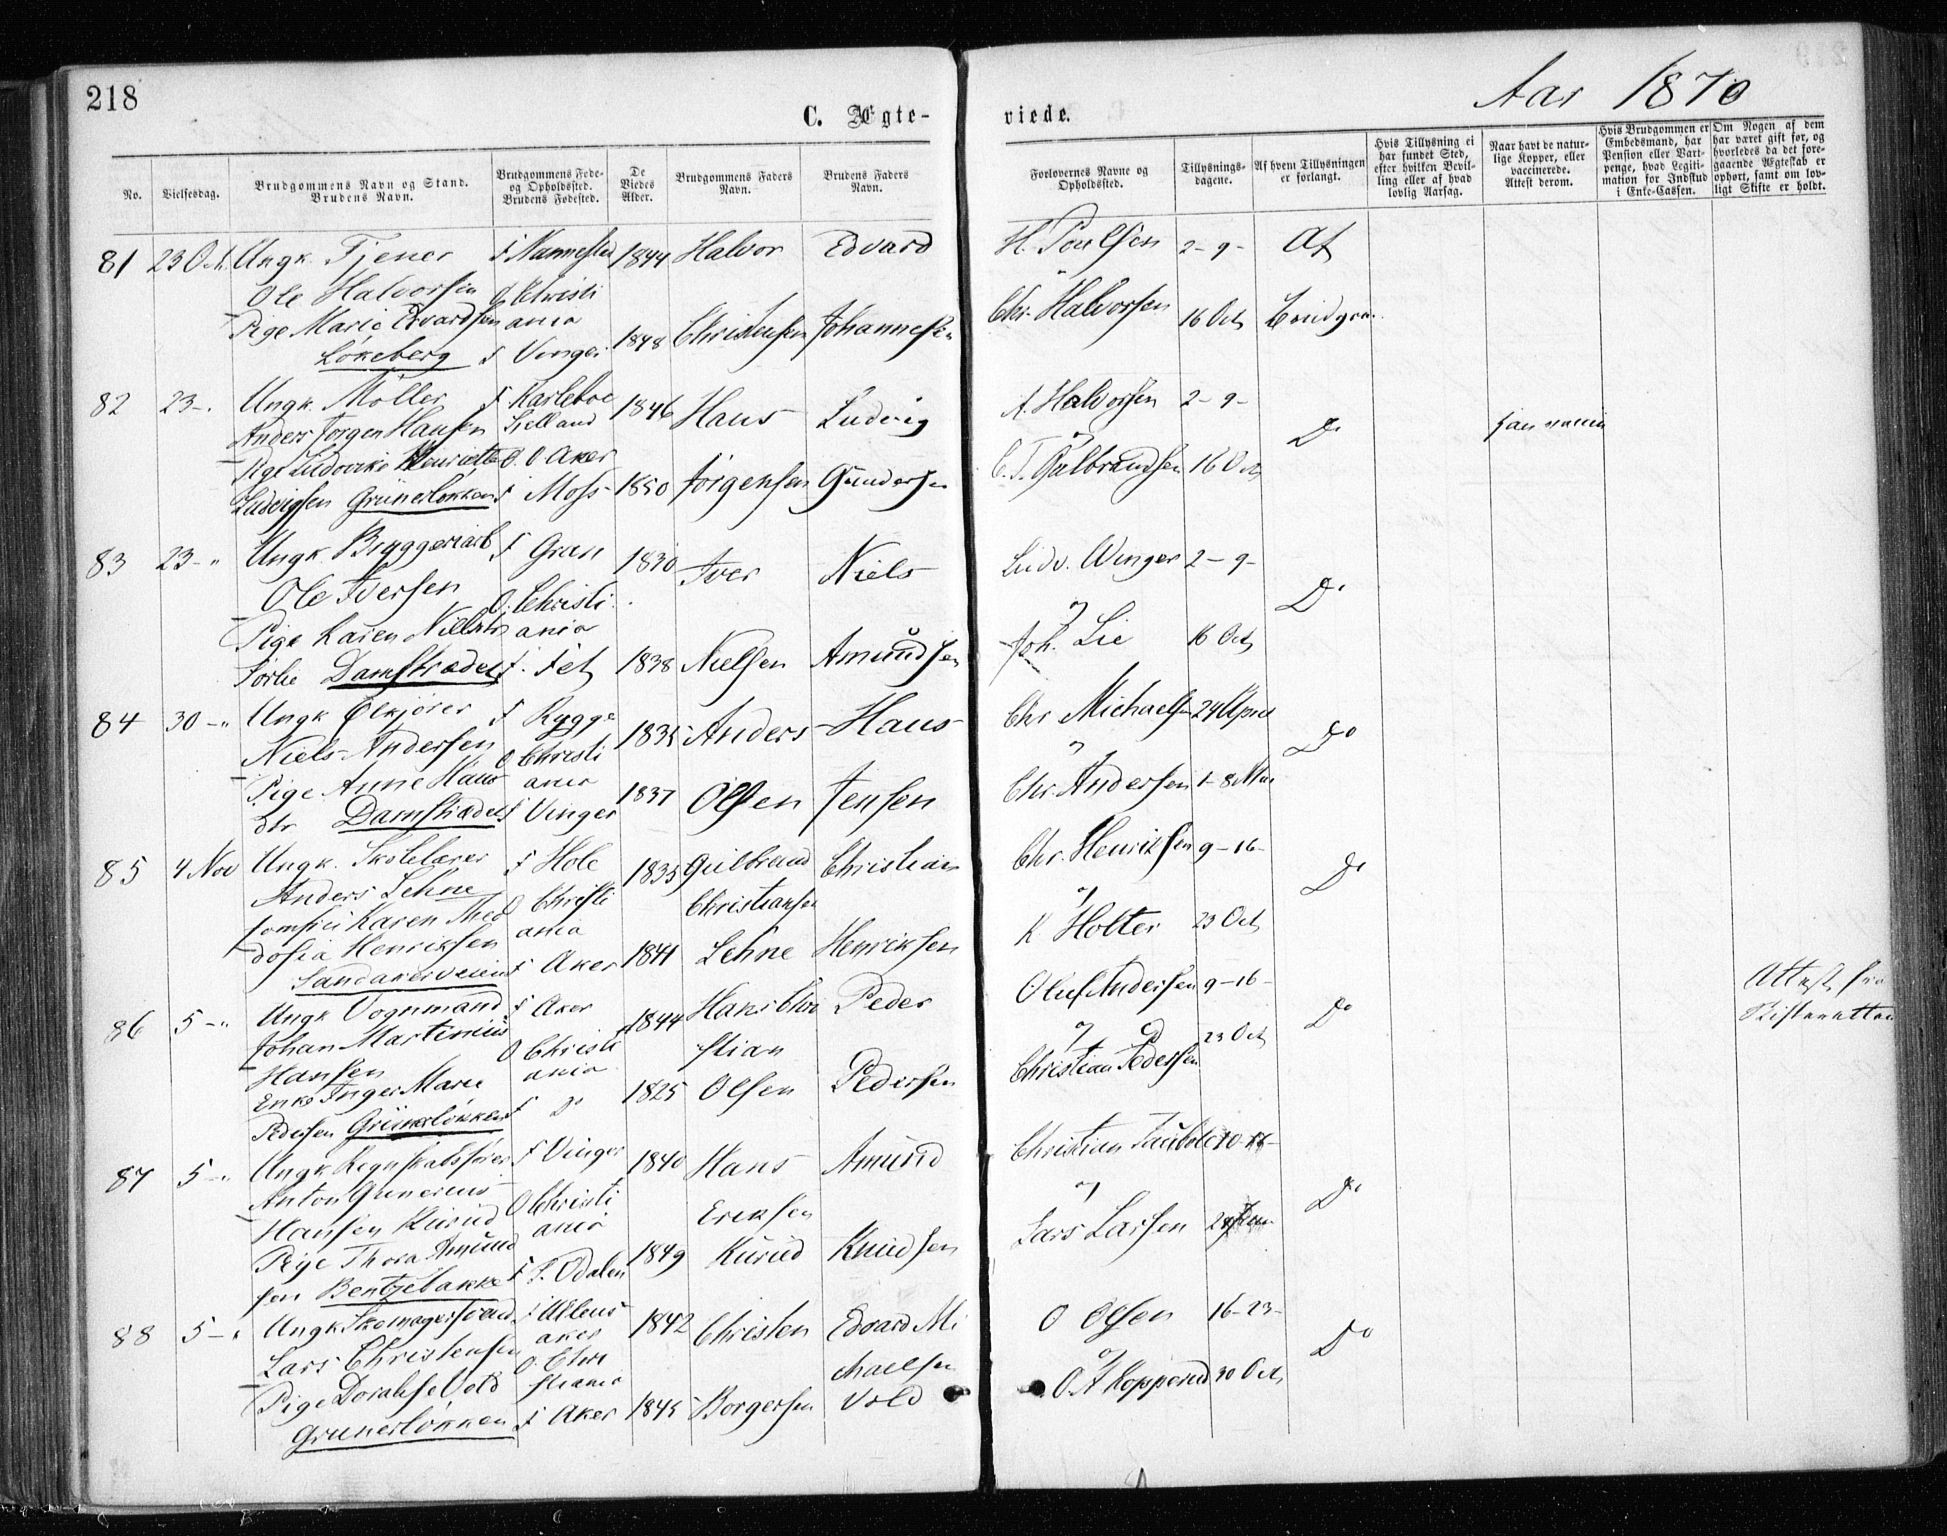 218
Aar 1870
C. Ægte-
viede.
No.
Vielsesdag.
Brudgommens Navn og Stand.
Brudens Navn.
Brudgommens Føde-
og Opholdssted.
Brudens Fødested.
De
Viedes
Alder.
Brudgommens Faders
Navn.
Brudens Faders
Navn.
Forlovernes Navne og
Opholdssted.
Tillysnings-
dagene.
Af hvem Tillysningen
er forlangt.
Hvis Tillysning ei
har fundet Sted,
efter hvilken Bevil-
ling eller af hvad
lovlig Aarsag.
Naar havt de natur-
lige Kopper, eller
vaccinerede.
Attest derom.
Hvis Brudgommen er
Embedsmand, har
Pension eller Vart-
penge, hvad Legiti-
mation for Indskud
i Enke-Cassen.
Om Nogen af dem
har været gift før, og
hvorledes da det fore-
gaaende Ægteskab er
ophørt, samt om lov-
ligt Skifte er holdt.
81 23 Oct. Ungk. Tjener f Nannestad 1844 Halvor Edvard H. Poulsen 2-9- Af
Ole Halvorsen O Christi
Pige Marie Edvardsen ania 1848 Christensen Johannesen Chr. Halvorsen 16 Oct Brudgom.
Løkeberg f Vinger
82 23-. Ungk. Møller f Karleboe 1846 Hans Ludvig A. Halvorsen 2-9-
Anders Jørgen Hansen Sjelland Do
Pige Ludovike Henriette O Aker
Ludvigsen Grünerløkken f Moss 1850 Jörgensen Gundersen C. T. Gulbrandsen 16 Oct
83 23-" Ungk Bryggeriarb f Gran 1830 Iver Niels Ludv. Winger 2-9-
Ole Iversen O. Christi Do
Pige Karen Nielsdtr ania og Joh. Lie 16 Oct
Sørlie Damstrædet f. Fet 1838 Nielsen Amundsen
84 30-" Ungk Ølkjører f Rygge 1835 Anders Hans Chr Michaelsen 24 April
Niels Andersen O Christi Do
Pige Anne Hans ania 1837 Olsen Jensen Chr. Andersen 1-8 Mai
dtr Damstrædet f Vinger
85 4 Nov Ungk. Skolelærer f Hole 1835 Gulbrand Christian Chr. Henriksen 9-16-
Anders Lehne O Christi Christiansen og Do
Jomfru Karen Theo ania K Holter 23 Oct
dosia Henriksen f Aker 1841 Lehne Henriksen
Sandakerveien
86 5-" Ungk Vognmand f Aker 1844 Hans Chri Peder Oluf Andersen 9-16- Attest fra
Johan Martinius O Christi stian og 23 Oct Do Skifteretten
Hansen ania Christian Pedersen
Enke Inger Marie 1825 Olsen Pedersen
Pedersen Grünerløkken f Do
87 5-" Ungk Regnskabsfører f Vinger 1840 Hans Amund Christian
Anton Gunerius O Christi og Do
Hansen Kurud ania Eriksen Lars Larsen
Pige Thora Amund 1849 Kurud Knudsen
sen Bentzebakke f S. Odalen
88 5-" Ungk Skomagersvend f Ullens 1842 Christen Edvard Mi O Olsen 16-23-
Lars Christensen aker og Do
O. Chri chaelsen
Pige Dorthe Vold stiania O. A Kopperud 30 Oct
Grünerløkken f Aker 1845 Borgersen Vold